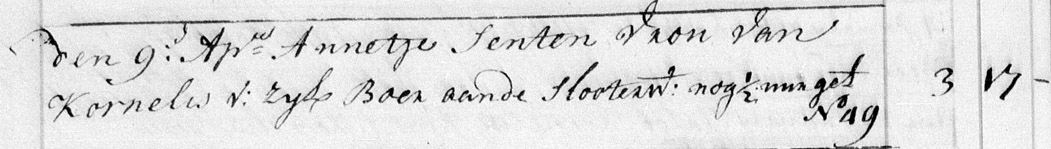 den 9:d Apr: Annetje Senten Vrou van
Kornelis v: Zyl Boer aande Slooterw: nog ½ uur gel 3 17 -
No 49